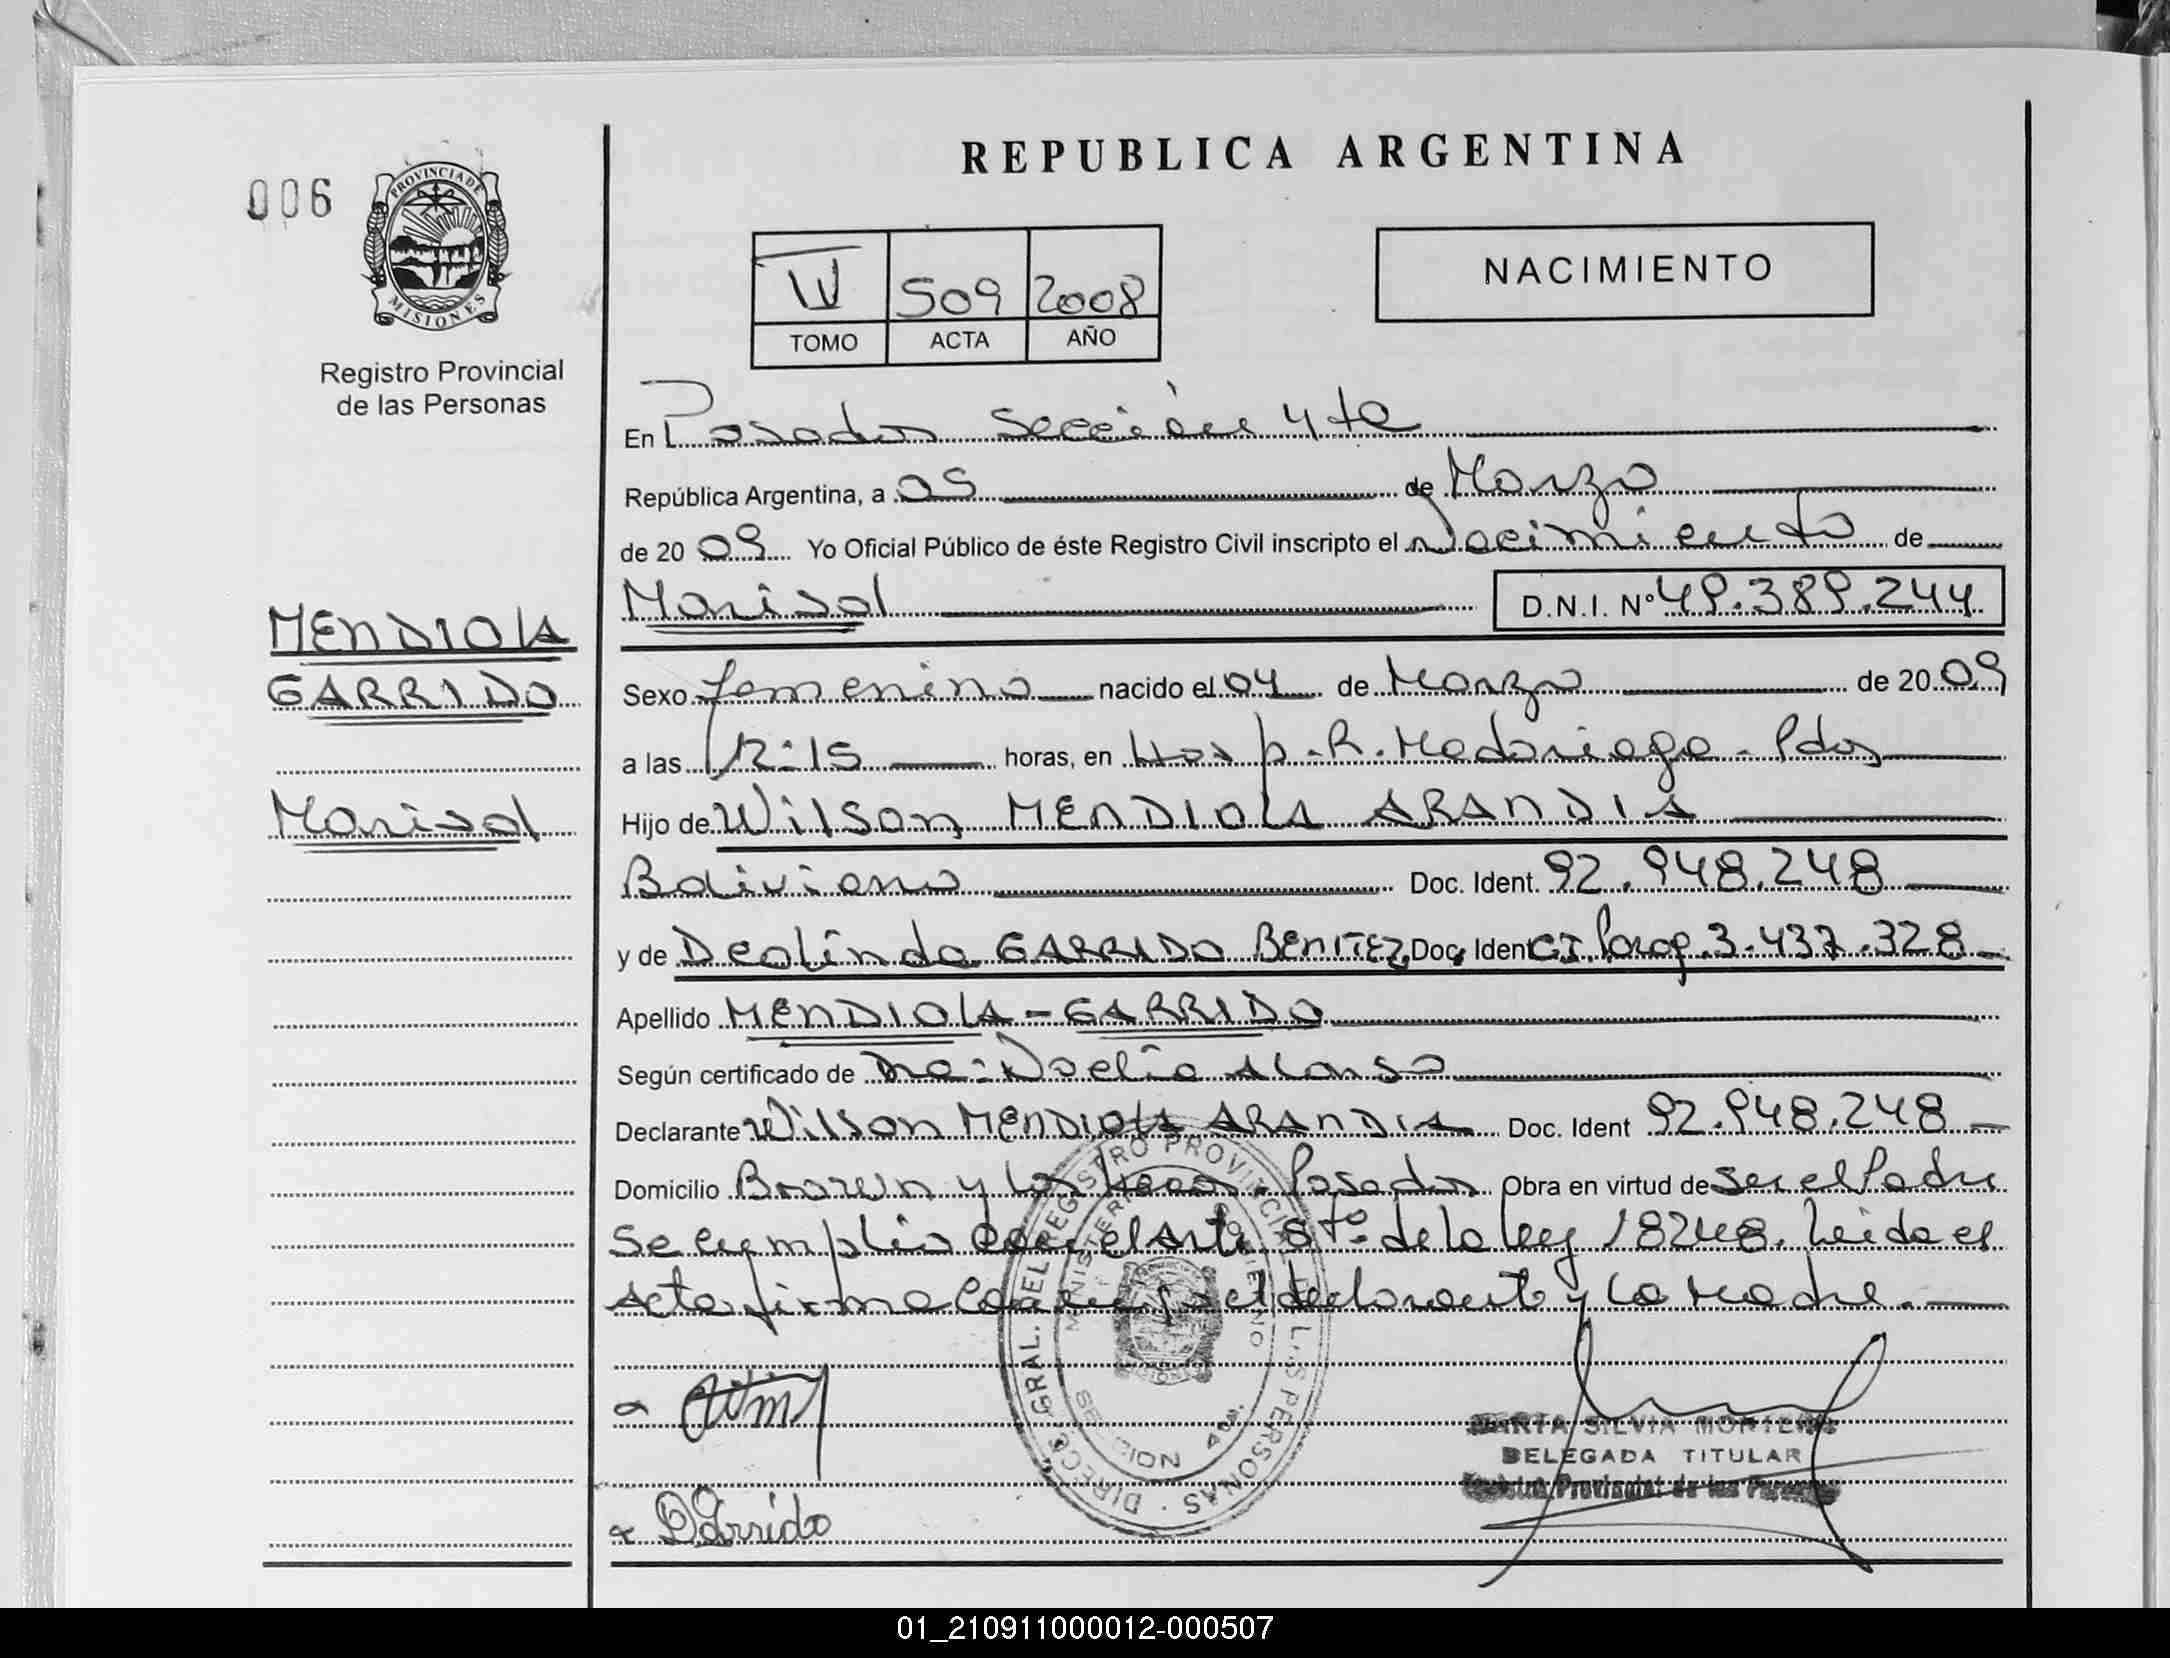 REPUBLICA ARGENTINA
006
PROVINCIA DE
MISIONES
Registro Provincial
de las Personas
509 2008
TOMO ACTA AÑO
NACIMIENTO
En Posadas Sección 4ta
República Argentina, a 05 de Marzo
de 20 09 Yo Oficial Público de éste Registro Civil inscripto el Nacimiento de
Marisol D.N.I. Nº 49.389.244
MENDIOLA
GARRIDO
Marisol
Sexo femenino nacido el 04 de Marzo de 20 09
a las 12:15 horas, en Hosp. R. Madariaga - Pdas
Hijo de Wilson MENDIOLA ARANDIA
Boliviano Doc. Ident. 92.948.248
y de Deolinda GARRIDO BENITEZ, Doc. Ident C.I. Parag. 3.437.328
Apellido MENDIOLA - GARRIDO
Según certificado de Dra: Noelia Alonso
Declarante Wilson MENDIOLA ARANDIA Doc. Ident 92.948.248
Domicilio Brown y Las - Posadas Obra en virtud de Ser el Padre
Se cumplio con el Art. 5to de la ley 18248. Leida el
Acta firma Conmigo el declarante y La Madre.
DIRECC. GRAL. DEL REGISTRO PROVINCIAL DE LAS PERSONAS
MINISTERIO GOBIERNO
SECCION 4ta.
MARTA SILVIA
DELEGADA TITULAR
Registro Provincial de las Personas
D Garrido
01_210911000012-000507